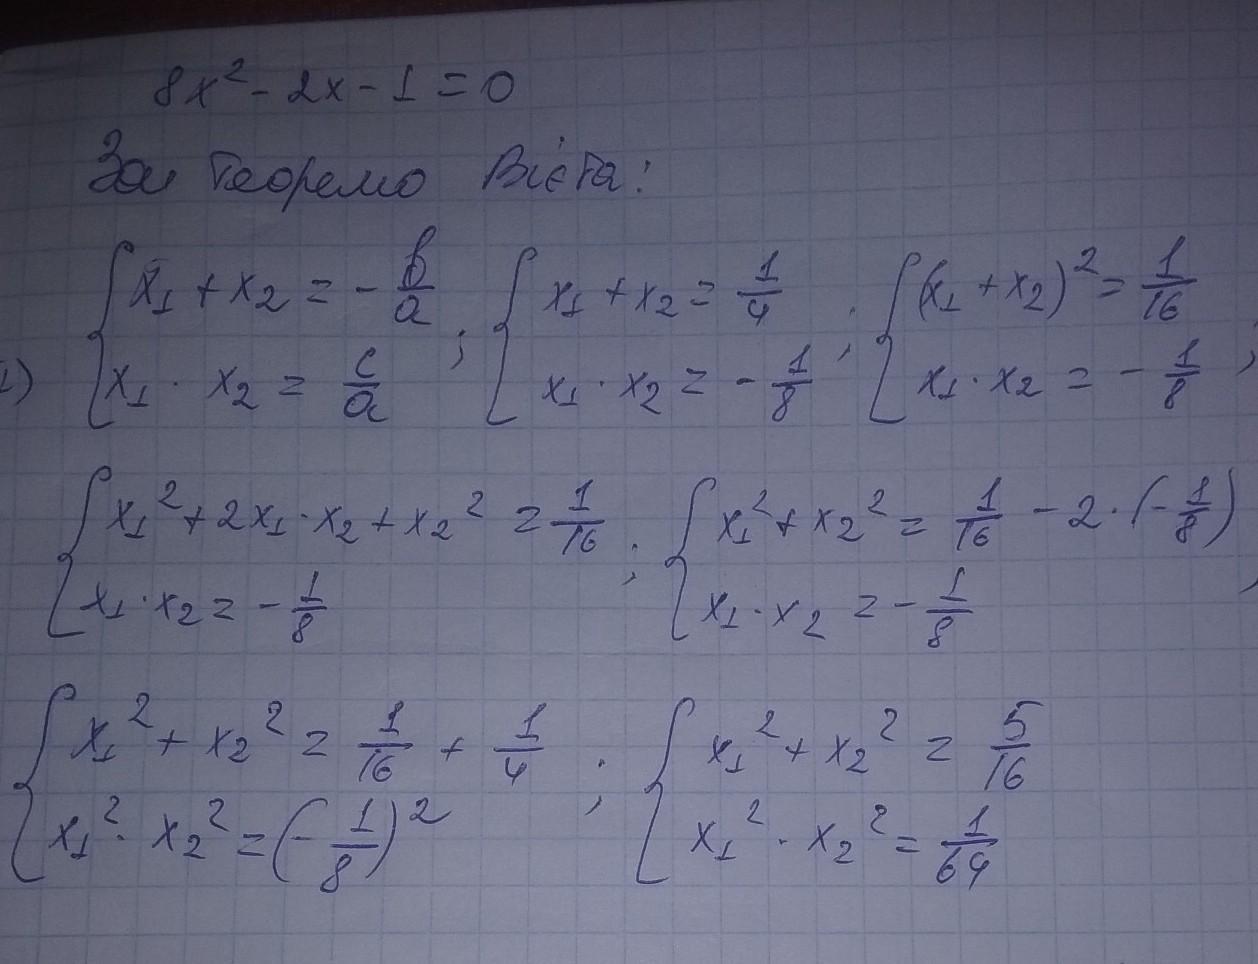 8x² - 2x - 1 = 0
За теоремо Вієта:
1) { x₁ + x₂ = - b/a ; x₁ · x₂ = c/a ; { x₁ + x₂ = 1/4 ; x₁ · x₂ = - 1/8 ; { (x₁ + x₂)² = 1/16 ; x₁ · x₂ = - 1/8 ;
{ x₁² + 2x₁ · x₂ + x₂² = 1/16 ; x₁ · x₂ = - 1/8 ; { x₁² + x₂² = 1/16 - 2 · (- 1/8) ; x₁ · x₂ = - 1/8 ;
{ x₁² + x₂² = 1/16 + 1/4 ; x₁² · x₂² = (- 1/8)² ; { x₁² + x₂² = 5/16 ; x₁² · x₂² = 1/64